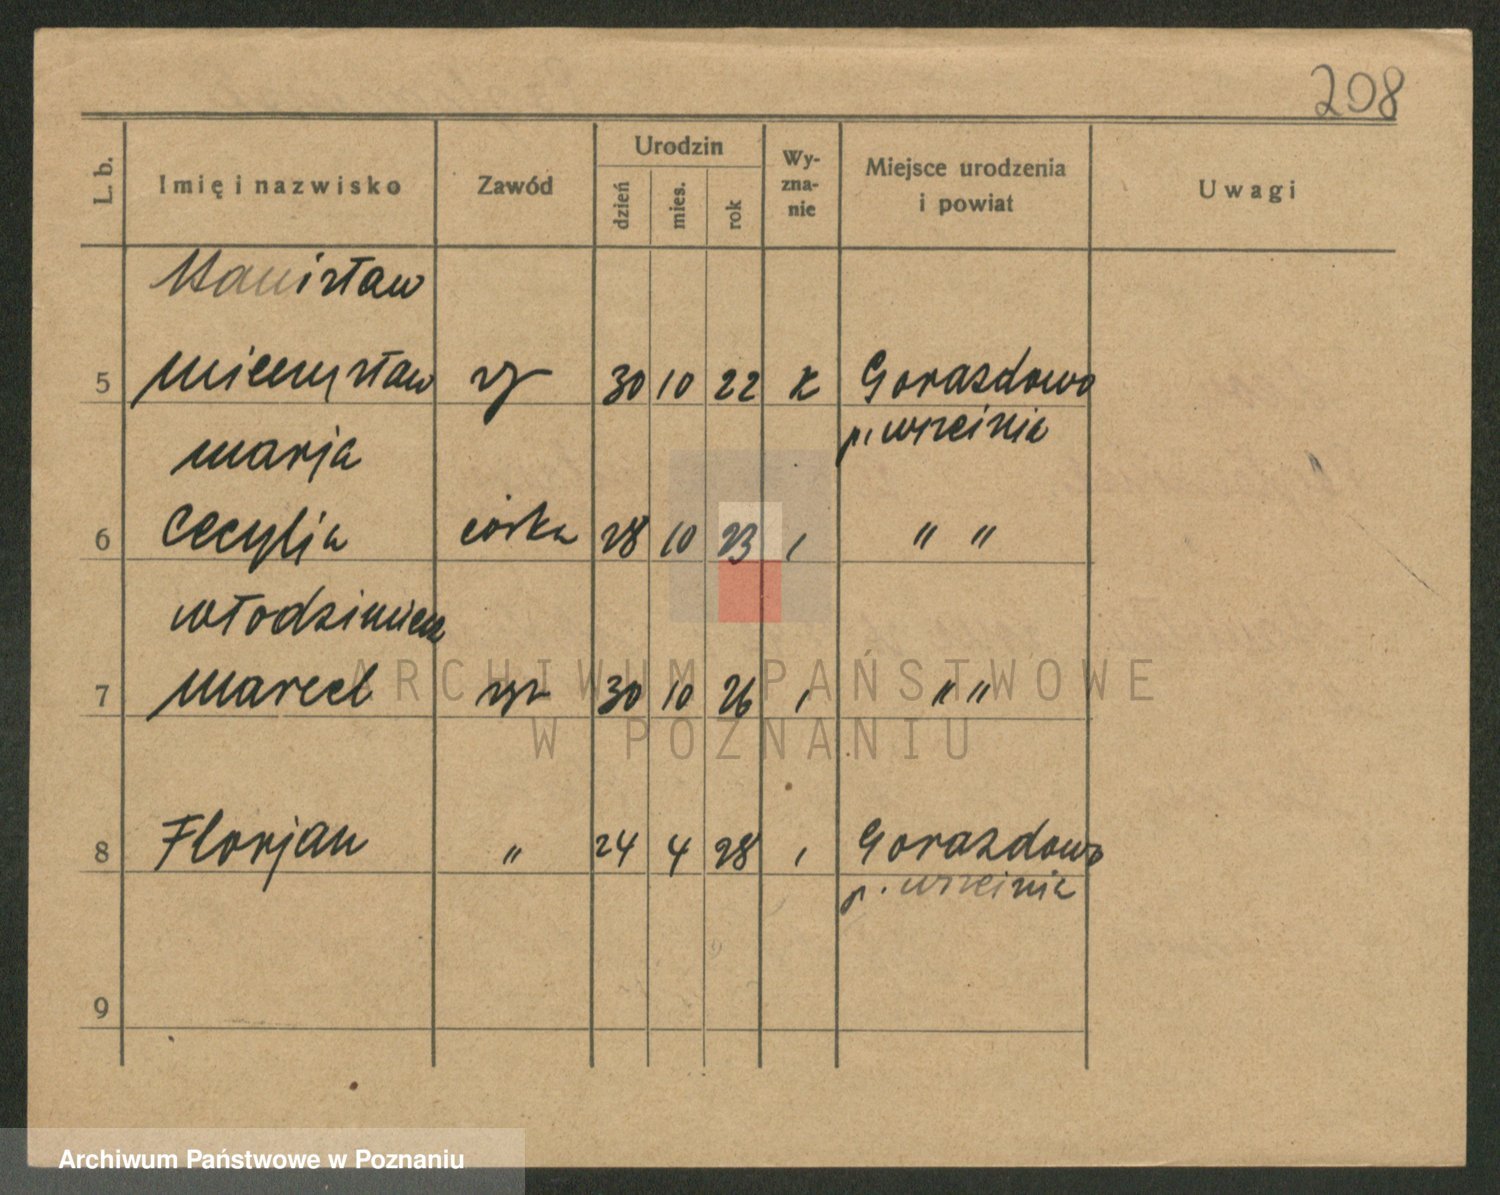 208
L. b. Imię i nazwisko Zawód Urodzin dzień mies. rok Wy- zna- nie Miejsce urodzenia i powiat Uwagi
Stanisław
5 Mieczysław 30 10 22 k Gorazdowo
p. Września
Marja
6 Cecylja córka 28 10 23 " "
Włodzimierz
7 Marcel 30 10 26 " "
ARCHIWUM PAŃSTWOWE
W POZNANIU
8 Florjan " 24 4 28 Gorazdowo
p. Września
9
Archiwum Państwowe w Poznaniu